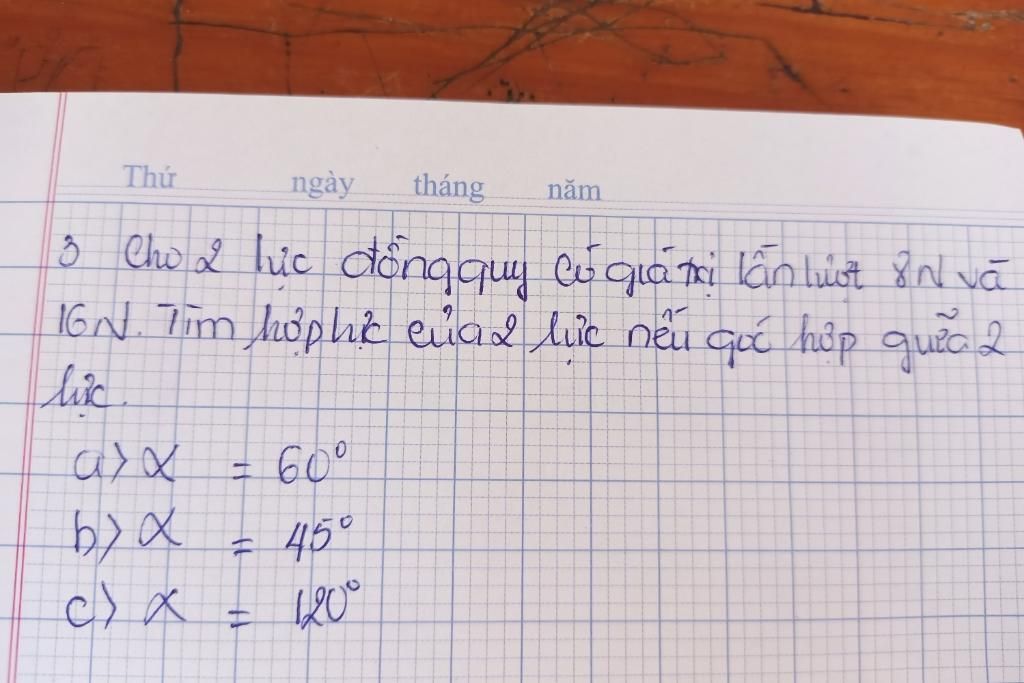 Thứ ngày tháng năm
3 Cho 2 lực đồng quy có giá trị lần lượt 8N và
16N. Tìm hợp lực của 2 lực nếu góc hợp giữa 2
lực.
a) α = 60°
b) α = 45°
c) α = 120°